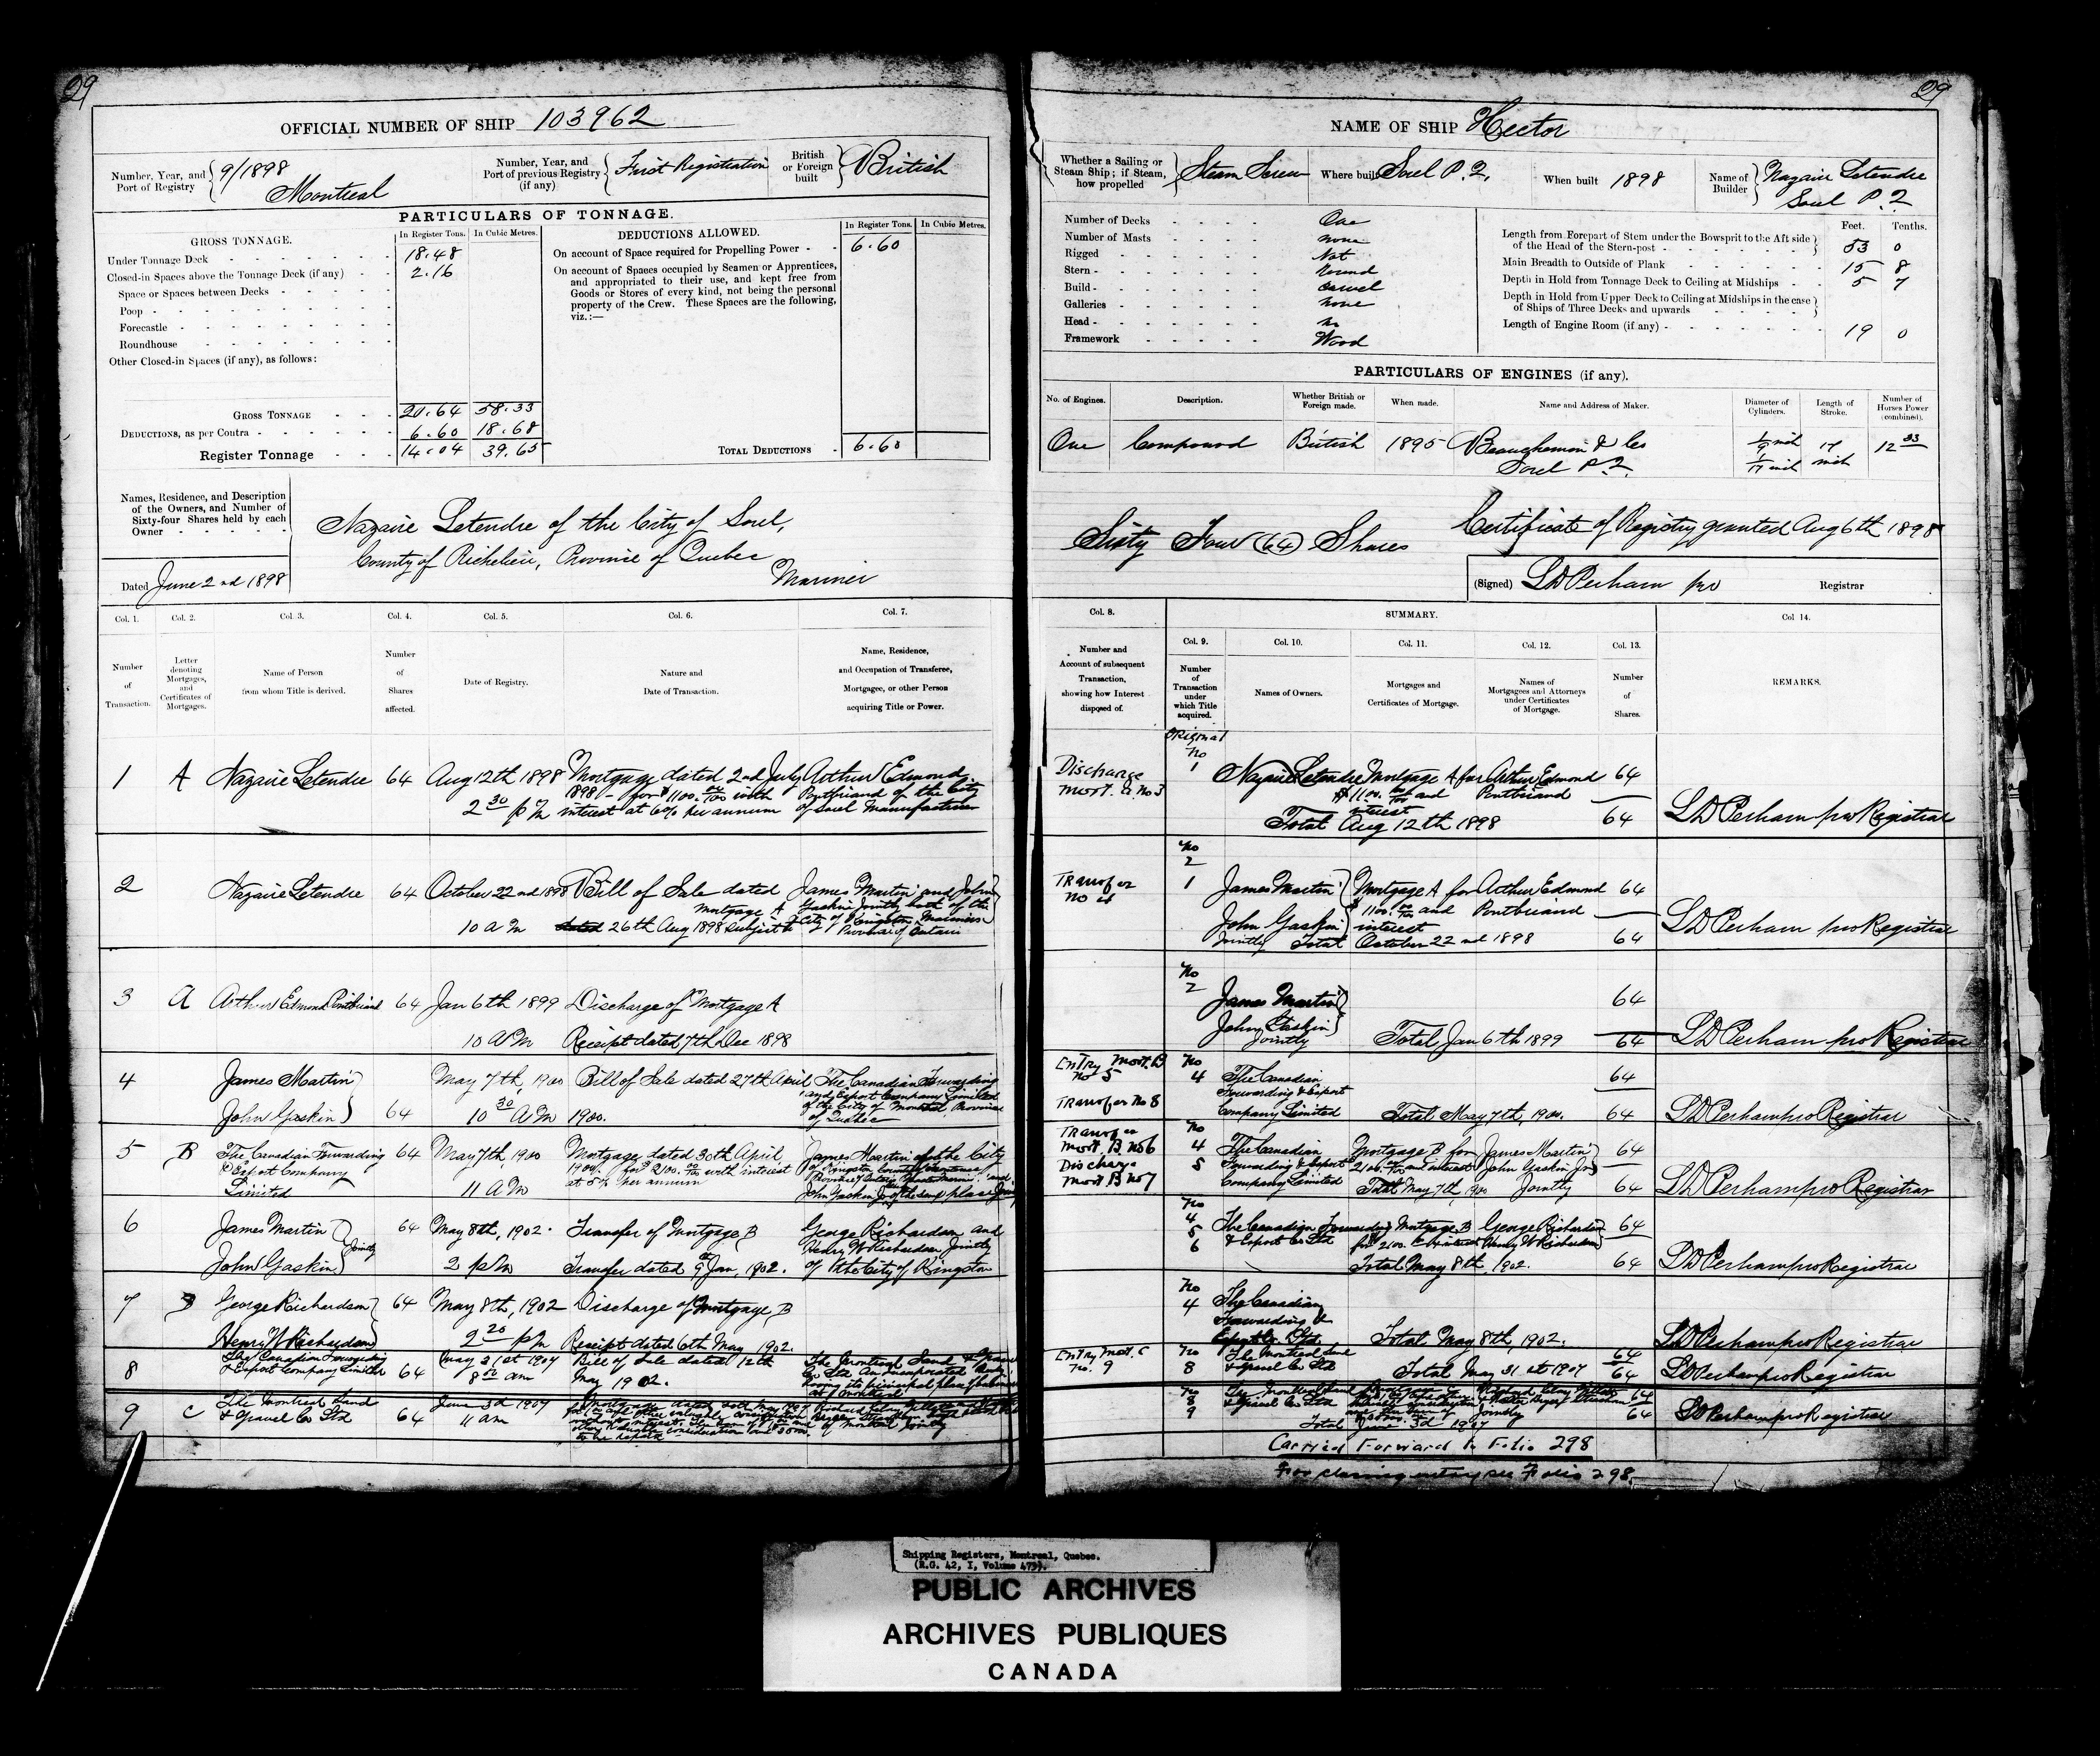 29
OFFICIAL NUMBER OF SHIP 103962
Number, Year, and Port of Registry 9/1898 Montreal
Number, Year, and Port of previous Registry (if any) First Registration
British or Foreign built British
PARTICULARS OF TONNAGE.
GROSS TONNAGE. In Register Tons. In Cubic Metres.
Under Tonnage Deck 18.48
Closed-in Spaces above the Tonnage Deck (if any) 2.16
Space or Spaces between Decks
Poop
Forecastle
Roundhouse
Other Closed-in Spaces (if any), as follows:
GROSS TONNAGE 20.64 58.33
DEDUCTIONS, as per Contra 6.60 18.68
Register Tonnage 14.04 39.65
DEDUCTIONS ALLOWED. In Register Tons. In Cubic Metres.
On account of Space required for Propelling Power 6.60
On account of Spaces occupied by Seamen or Apprentices,
and appropriated to their use, and kept free from
Goods or Stores of every kind, not being the personal
property of the Crew. These Spaces are the following,
viz.:—
TOTAL DEDUCTIONS 6.60
Names, Residence, and Description
of the Owners, and Number of
Sixty-four Shares held by each
Owner
Nazaire Letendre of the City of Sorel,
County of Richelieu, Province of Quebec
Mariner
Dated June 2nd 1898
Col. 1. Col. 2. Col. 3. Col. 4. Col. 5. Col. 6. Col. 7.
Number of Transaction.
Letter denoting Mortgages, and Certificates of Mortgages.
Name of Person from whom Title is derived.
Number of Shares affected.
Date of Registry.
Nature and Date of Transaction.
Name, Residence, and Occupation of Transferee, Mortgagee, or other Person acquiring Title or Power.
1 A Nazaire Letendre 64 Aug 12th 1898 Mortgage dated 2nd July Arthur Edmond
1898 - for $1100.00/100 with Pontbriand of the City
2 30 p m interest at 6% per annum of Sorel Manufacturer
2 Nazaire Letendre 64 October 22nd 1898 Bill of Sale dated James Martin and John
Mortgage A Gaskin Jointly both of the
10 a m dated 26th Aug 1898 subject to City of Kingston Mariners
Province of Ontario
3 A Arthur Edmond Pontbriand 64 Jan 6th 1899 Discharge of Mortgage A
10 AM Receipt dated 7th Dec 1898
4 James Martin May 7th, 1900 Bill of Sale dated 27th April The Canadian Forwarding
and Export Company Limited
John Gaskin 64 10 30 AM 1900. of the City of Montreal, Province
of Quebec
5 B The Canadian Forwarding 64 May 7th, 1900 Mortgage dated 30th April James Martin of the City
& Export Company 1900. for $2100.00/100 with interest of Kingston
Limited 11 AM at 5% per annum
John Gaskin Jr of the same place
6 James Martin 64 May 8th, 1902. Transfer of Mortgage B George Richardson and
Jointly Henry W Richardson Jointly
John Gaskin 2 pm Transfer dated 9th Jan, 1902. of the City of Kingston
7 B George Richardson 64 May 8th, 1902 Discharge of Mortgage B
Henry W Richardson 2 20 pm Receipt dated 6th May 1902.
8 The Canadian Forwarding & Export Company Limited 64 May 31st 1907 Bill of Sale dated 12th The Montreal Sand & Gravel
8 00 am May 1902. Co Ltd
at Montreal
9 C The Montreal Sand & Gravel Co Ltd 64 June 3d 1907
11 am
of Montreal Jointly
29
NAME OF SHIP Hector
Whether a Sailing or Steam Ship; if Steam, how propelled Steam Screw
Where built Sorel P.Q.
When built 1898
Name of Builder Nazaire Letendre Sorel P.Q
Number of Decks One
Number of Masts None
Rigged Not
Stern Round
Build Carvel
Galleries None
Head No
Framework Wood
Feet. Tenths.
Length from Forepart of Stem under the Bowsprit to the Aft side of the Head of the Stern-post 53 0
Main Breadth to Outside of Plank 15 8
Depth in Hold from Tonnage Deck to Ceiling at Midships 5 7
Depth in Hold from Upper Deck to Ceiling at Midships in the case of Ships of Three Decks and upwards
Length of Engine Room (if any) 19 0
PARTICULARS OF ENGINES (if any).
No. of Engines. Description. Whether British or Foreign made. When made. Name and Address of Maker. Diameter of Cylinders. Length of Stroke. Number of Horses Power (combined).
One Compound British 1895 Beauchemin & Co 1/9 inch 17 12 33
Sorel P.Q. 1/17 inch inch
Sixty Four (64) Shares
Certificate of Registry granted Aug 6th 1898
(Signed) L D Perham pro Registrar
Col. 8. SUMMARY. Col 14.
Col. 9. Col. 10. Col. 11. Col. 12. Col. 13.
Number and Account of subsequent Transaction, showing how Interest disposed of.
Number of Transaction under which Title acquired.
Names of Owners.
Mortgages and Certificates of Mortgage.
Names of Mortgagees and Attorneys under Certificates of Mortgage.
Number of Shares.
REMARKS.
Original
Discharge No 1 Nazaire Letendre Mortgage A for Arthur Edmond 64
Mort. A. No 3 $1100.00/100 and Pontbriand
interest
Total Aug 12th 1898 64 L D Perham pro Registrar
No 2
Transfer 1 James Martin Mortgage A for Arthur Edmond 64
No 4 $1100.00/100 and Pontbriand
John Gaskin interest
Jointly Total October 22nd 1898 64 L D Perham pro Registrar
No 2 James Martin 64
John Gaskin
Jointly Total Jan 6th 1899 64 L D Perham pro Registrar
Entry Mort. B No 5 No 4 The Canadian 64
Forwarding & Export
Transfer No 8 Company Limited Total May 7th, 1900. 64 L D Perham pro Registrar
Transfer Mort. B No 6 No 4 The Canadian Mortgage B for James Martin 64
Discharge 5 Forwarding & Export $2100.00 and interest John Gaskin Jr
Mort B No 7 Company Limited Total May 7th, 1900 Jointly 64 L D Perham pro Registrar
No 4 5 6 The Canadian Forwarding & Export Co Ltd Mortgage B George Richardson 64
for $2100.00 & interest Henry W Richardson
Total May 8th, 1902. 64 L D Perham pro Registrar
No 4 The Canadian
Forwarding &
Export Co. Ltd Total May 8th, 1902. 64 L D Perham pro Registrar
Entry Mort. C No. 9 No 8 The Montreal Sand & Gravel Co Ltd Total May 31st 1907 64 L D Perham pro Registrar
No 8 9 The Montreal Sand & Gravel Co Ltd 64
Jointly
Total June 3d 1907 64 L D Perham pro Registrar
Carried Forward to Folio 298
For closing entry see Folio 298.
Shipping Registers, Montreal, Quebec.
(R.G. 42, I, Volume 479).
PUBLIC ARCHIVES
ARCHIVES PUBLIQUES
CANADA